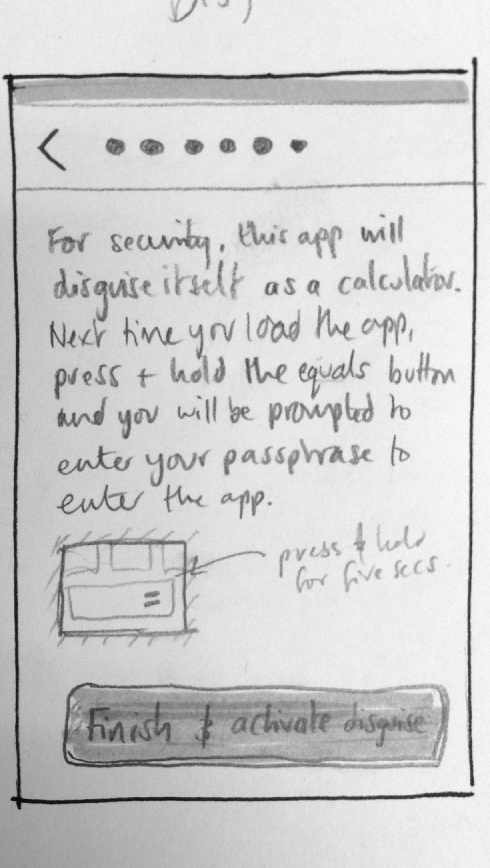 For security, this app will
disguise itself as a calculator.
Next time you load the app,
press + hold the equals button
and you will be prompted to
enter your passphrase to
enter the app.
press & hold
for five secs.
=
Finish & activate disguise